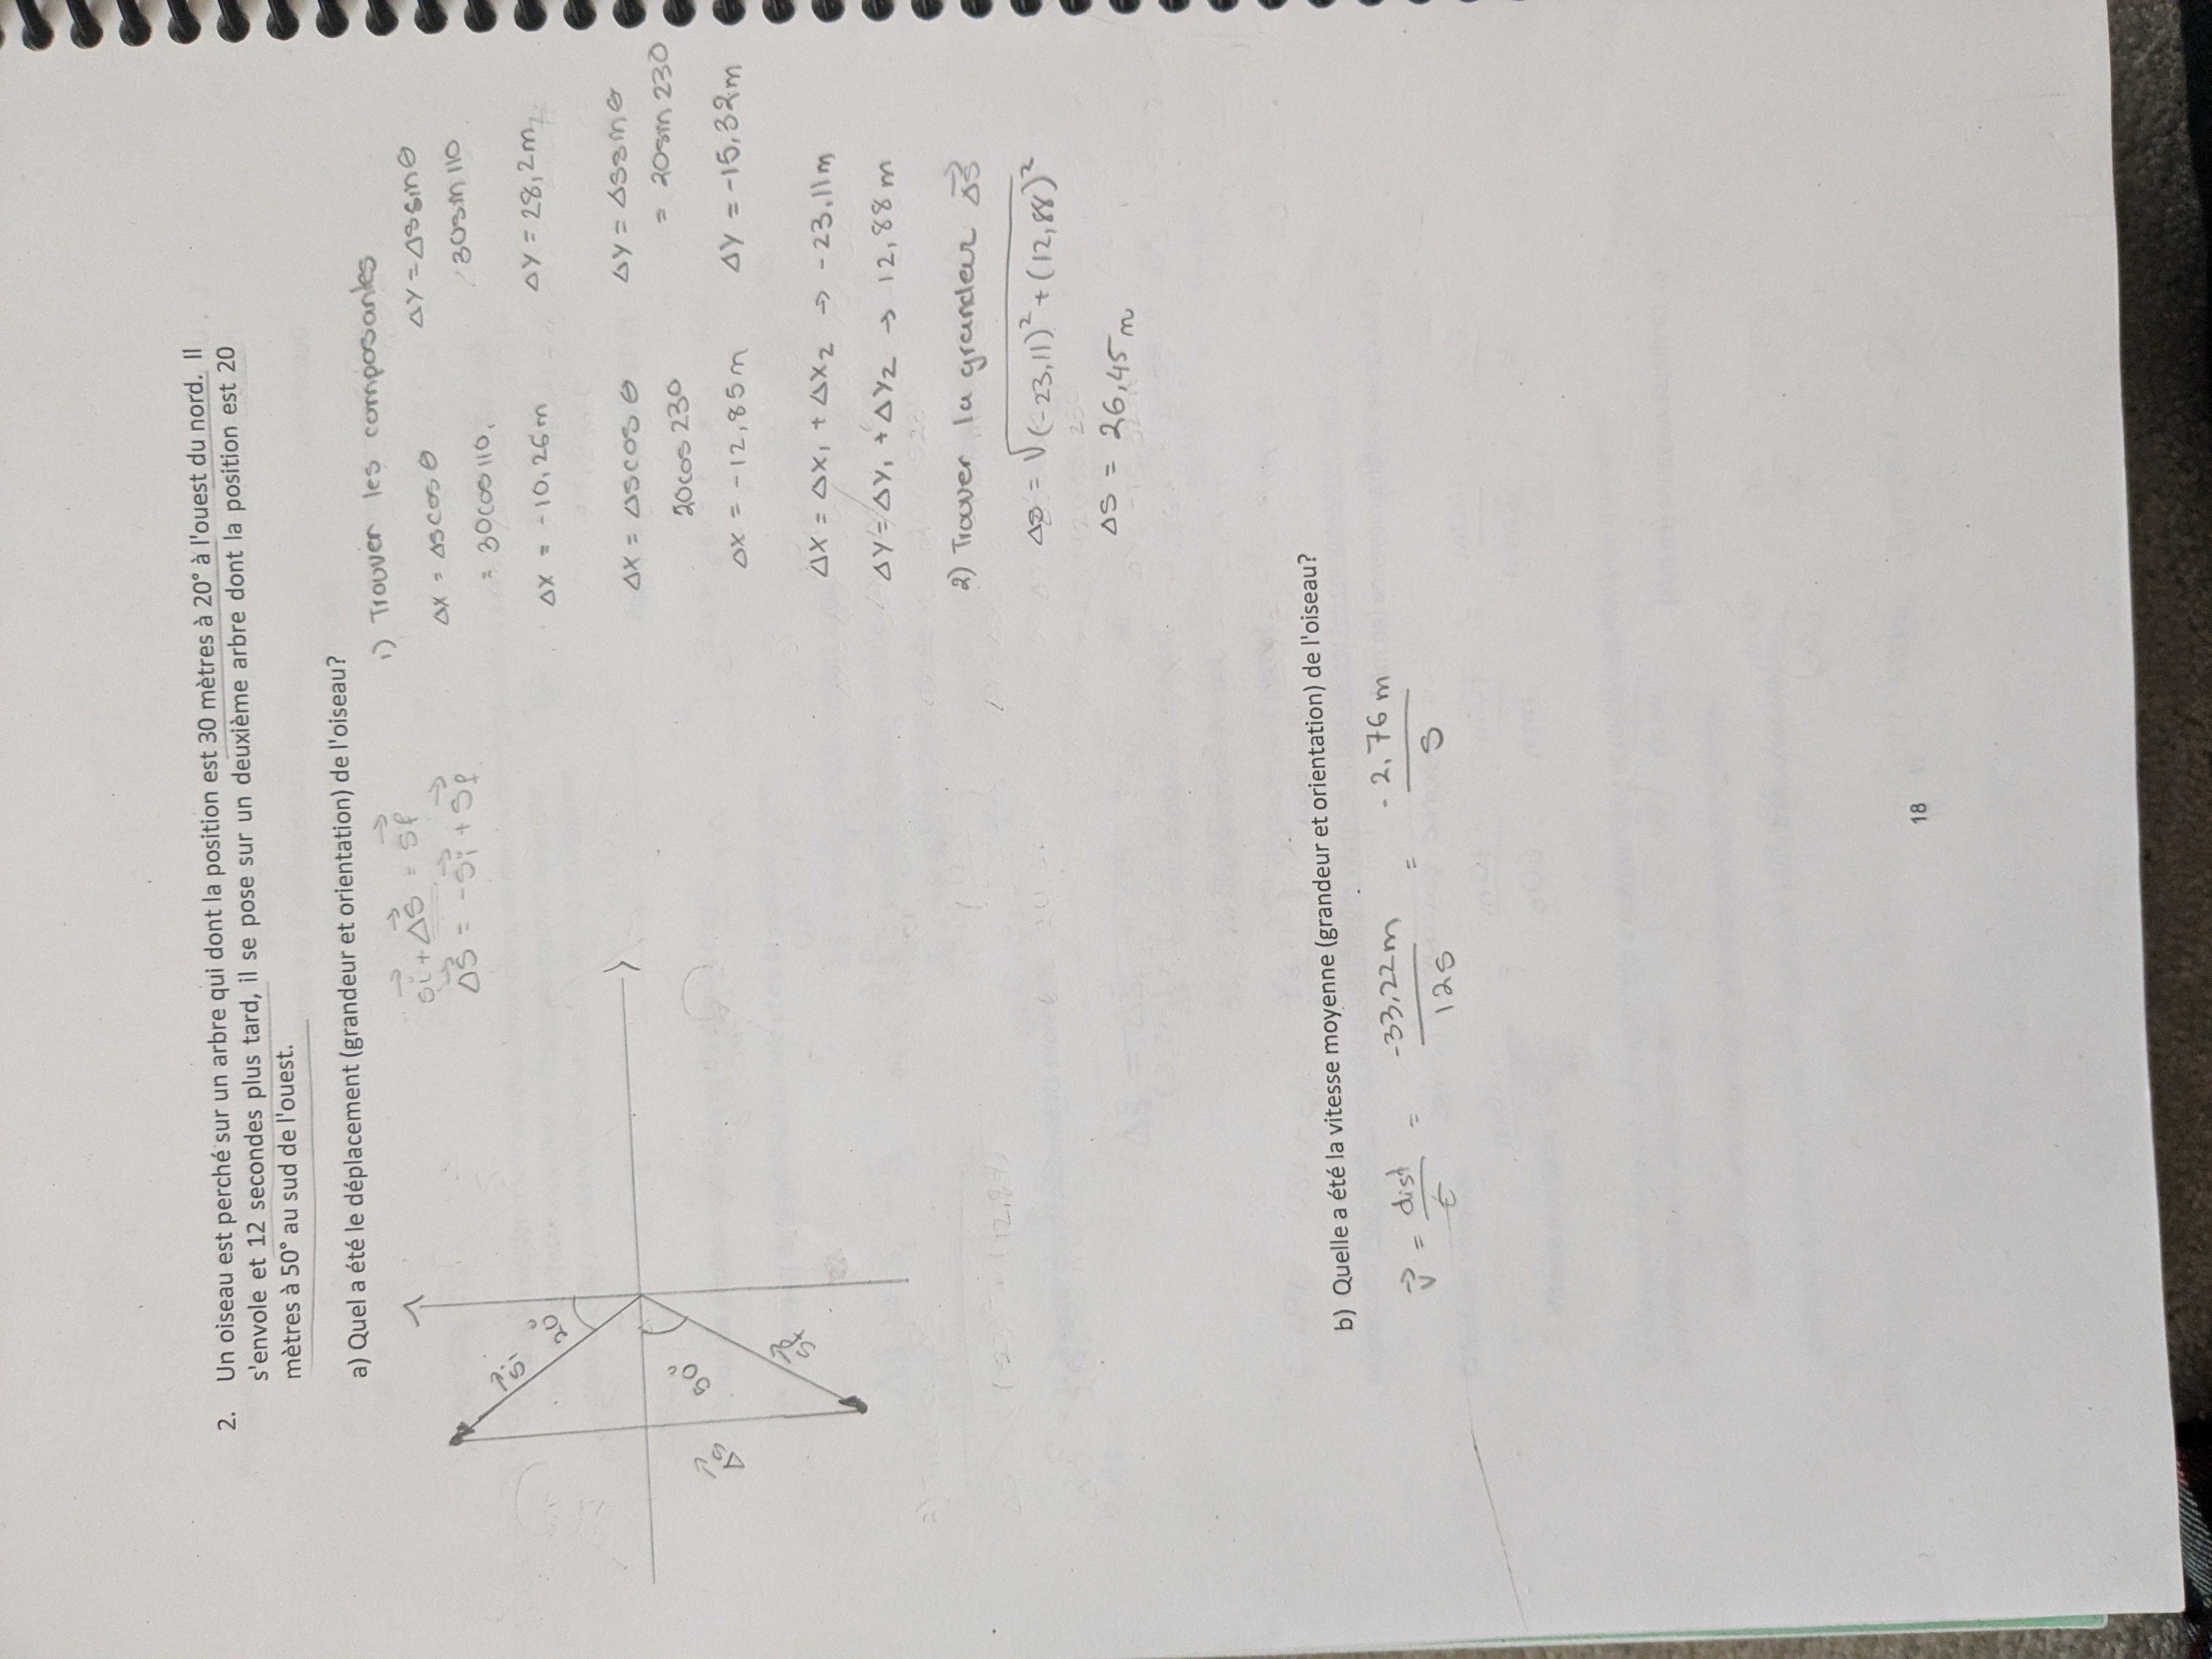 2. Un oiseau est perché sur un arbre qui dont la position est 30 mètres à 20° à l'ouest du nord. Il
s'envole et 12 secondes plus tard, il se pose sur un deuxième arbre dont la position est 20
mètres à 50° au sud de l'ouest.
a) Quel a été le déplacement (grandeur et orientation) de l'oiseau?
Si + ΔS = Sf
ΔS = -Si + Sf
Si
20°
50°
Sf
ΔS
1) Trouver les composantes
Δx = Δs cos θ ΔY = Δs sin θ
= 30cos110 30sin110
Δx = -10,26m ΔY = 28,2m
Δx = Δs cos θ ΔY = Δs sin θ
20cos230 = 20sin230
Δx = -12,85m ΔY = -15,32m
ΔX = Δx1 + Δx2 → -23,11m
ΔY = ΔY1 + ΔY2 → 12,88m
2) Trouver la grandeur ΔS
Δs = √(-23,11)² + (12,88)²
ΔS = 26,45m
b) Quelle a été la vitesse moyenne (grandeur et orientation) de l'oiseau?
V = dist/t = -33,22m/12s = -2,76 m/s
18